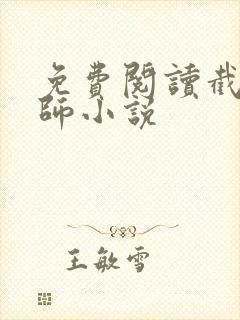 免費閱讀截
師小說
王敏雪